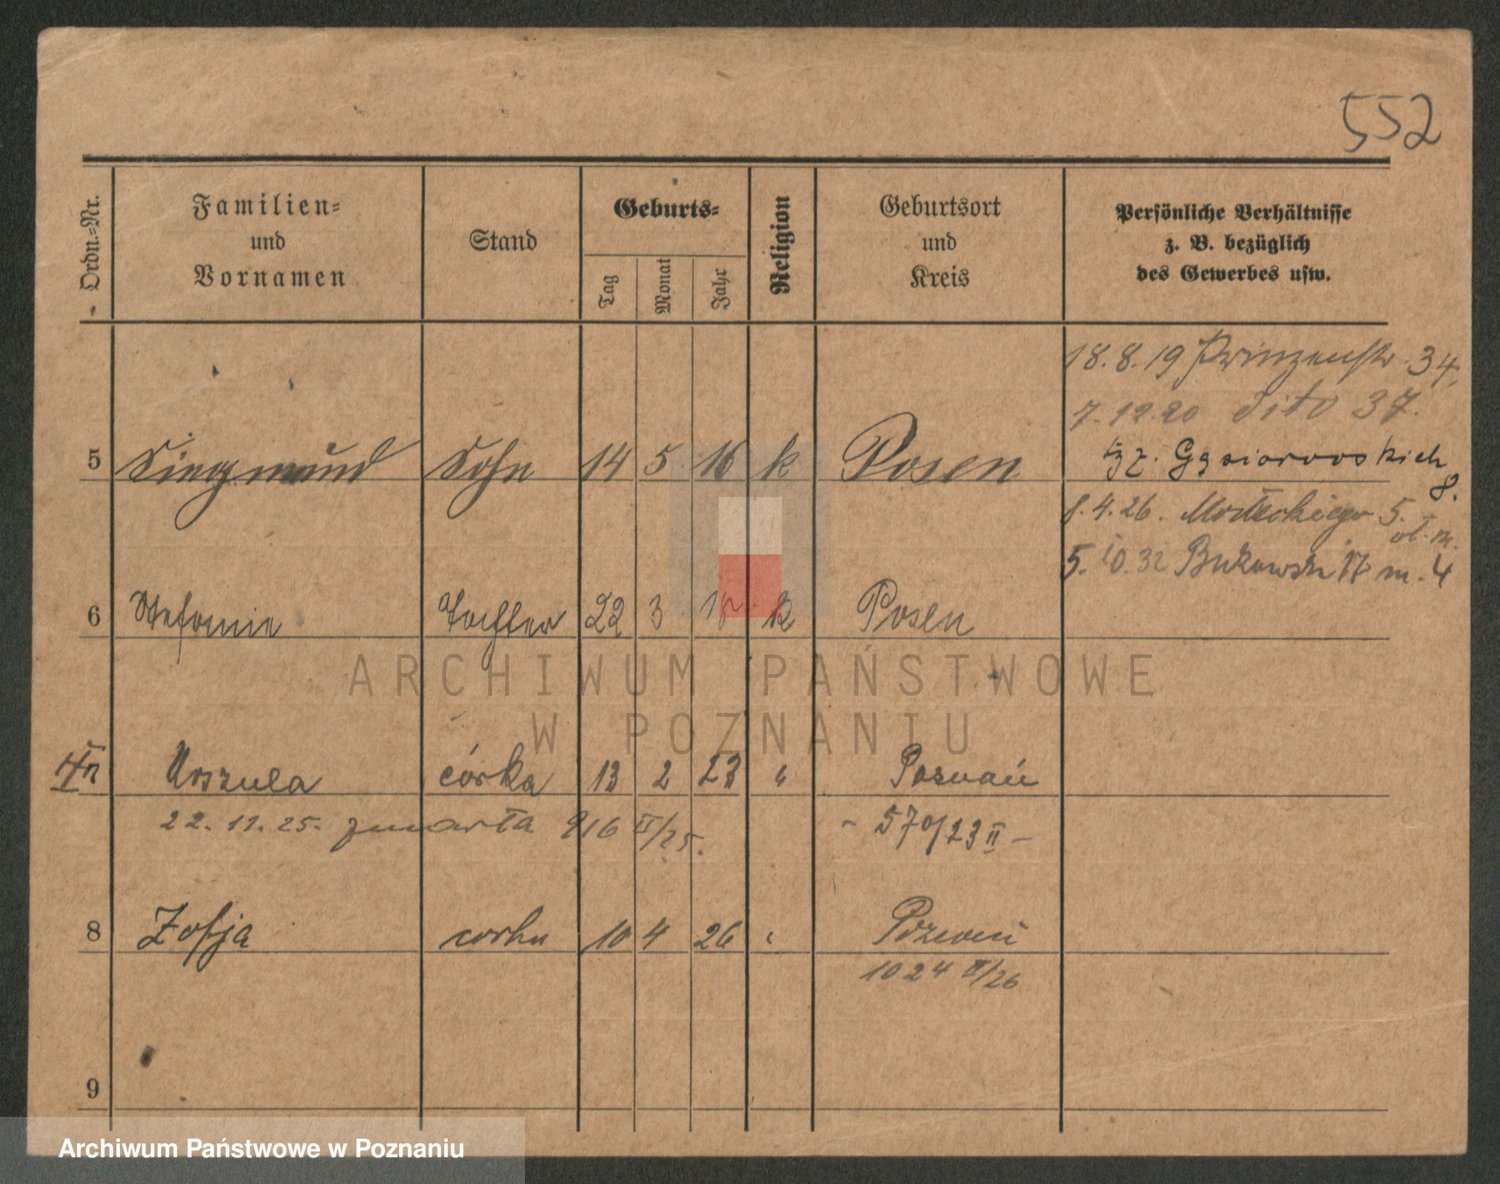 552
Ordn.-Nr.
Familien-
und
Vornamen
Stand
Geburts-
Tag
Monat
Jahr
Religion
Geburtsort
und
Kreis
Persönliche Verhältnisse
z. B. bezüglich
des Gewerbes usw.
18.8.19 Prinzenstr. 34,
7.12.20 dito 37.
Gąsiorowskich
8.
5 Siegmund Sohn 14 5 16 k Posen
8.4.26. 5.
5. 10. 32 Bukowska 17 m. 4
6 Stefanie Tochter 22 3 k Posen
ARCHIWUM PAŃSTWOWE
W POZNANIU
Urszula córka 13 2 23 " Poznań
22.11.25. zmarła 916 II/25. - 570/23 II -
8 Zofja corka 10 4 26 " Poznań
1024 II/26
9
Archiwum Państwowe w Poznaniu